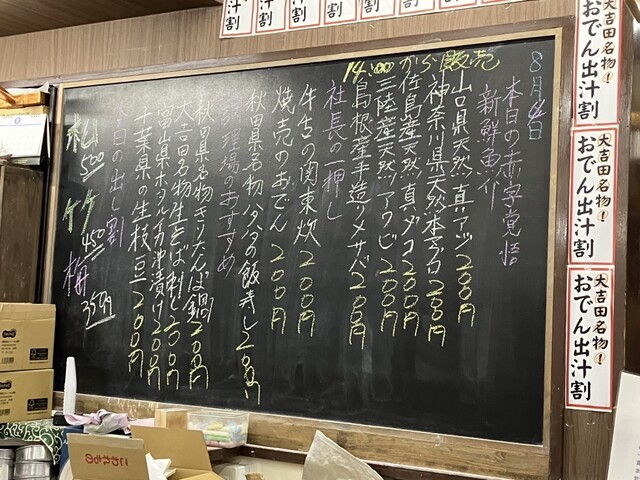 8月4日
本日の赤字覚悟
新鮮魚介
14:00から販売
山口県天然真アジ200円
神奈川県天然本マグロ200円
佐島産天然真ダコ200円
三陸産天然アワビ200円
島根産手造りメサバ200円
社長の一押し
牛すじの関東炊200円
焼売のおでん200円
秋田県名物ハタハタの飯寿し200円
調理場のおすすめ
秋田県名物きりたんぽ鍋200円
大吉田名物生そば刺し200円
富山県ホタルイカ沖漬け200円
千葉県の生枝豆200円
本日の出し割
松500
竹450
梅350円
大吉田名物!
おでん出汁割
大吉田名物!
おでん出汁割
大吉田名物!
おでん出汁割
こわれもの